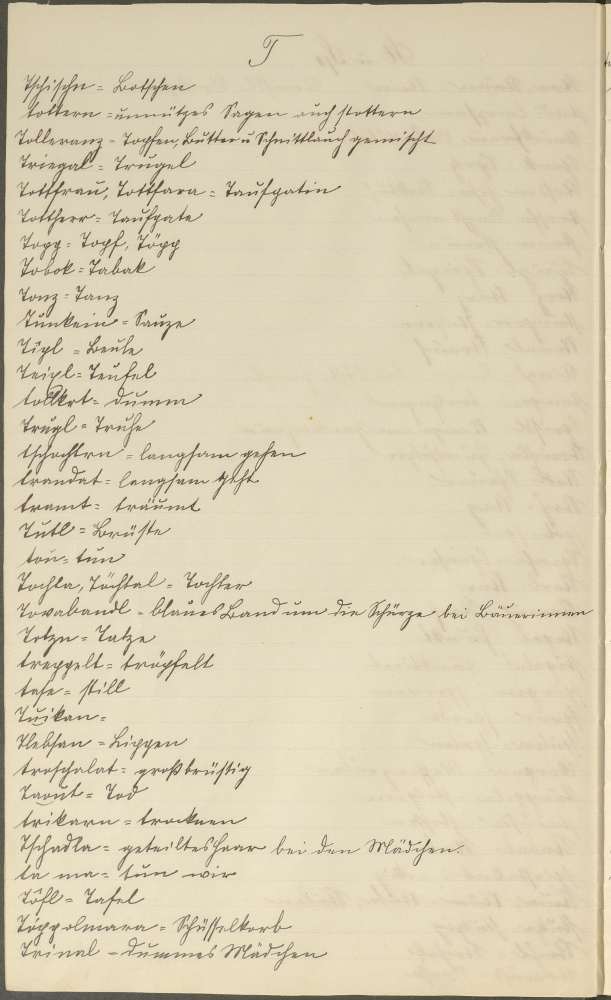 T
Tschischn = Botschen
tottern = unnützes Sagen auch stottern
Tolleranz = Topfen, Butter u Schnittlauch gemischt
Triegal = Trugel
Tottfrau, Tottfara = Taufpatin
Tottherr = Taufpate
Topp = Topf, Töpp
Tobok = Tabak
Tonz = Tanz
Tunkein = Sauze
Tipl = Beule
Teipl = Teufel
= dumm
Trugl = Truhe
tschochtrn = langsam gehen
trandat = langsam geht
tramt = träumt
Tutl = Brüste
ton = tun
Tochla, Töchtal = Tochter
Towabandl = blaues Band um die Schürze bei Bäuerinnen
Totzn = Tatze
treppelt = tröpfelt
tase = still
Tuikan =
Tlebsan = Lippen
troschalat = großbrüstig
Taout = Tod
trikarn = trocknen
Tschadla = geteiltes Haar bei den Mädchen.
ta ma = tun wir
Töfl = Tafel
Töppolmara = Schüsselkorb
Trinal = dummes Mädchen